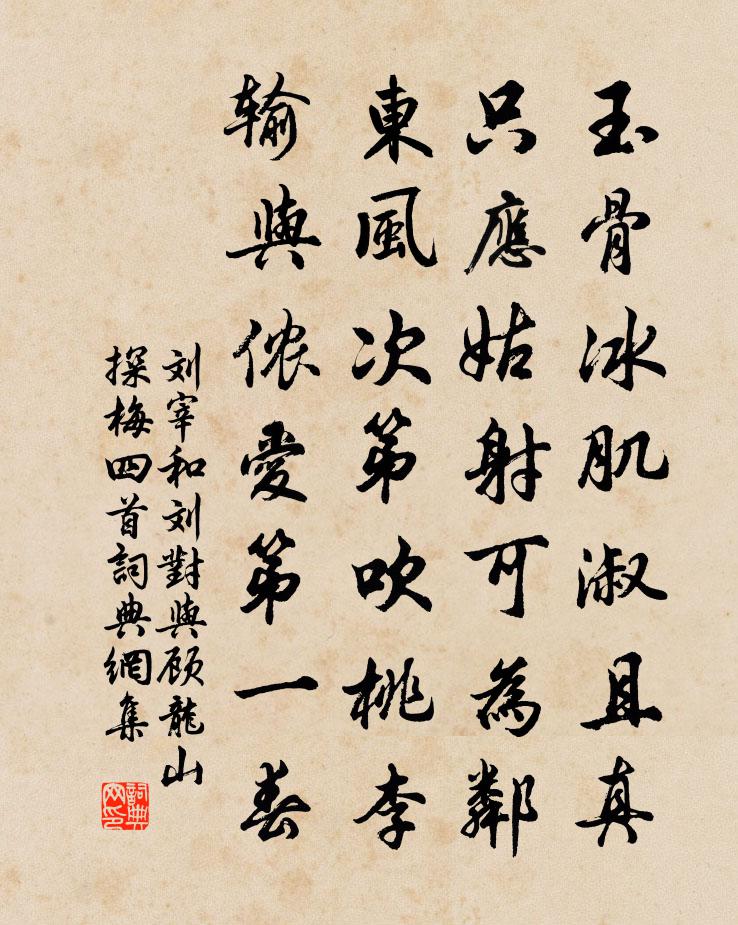 玉骨冰肌淑且真
只應姑射可為鄰
東風次第吹桃李
输與侬愛第一春
刘宰和刘對與顾龍山
探梅四首詞典網集
詞典网印